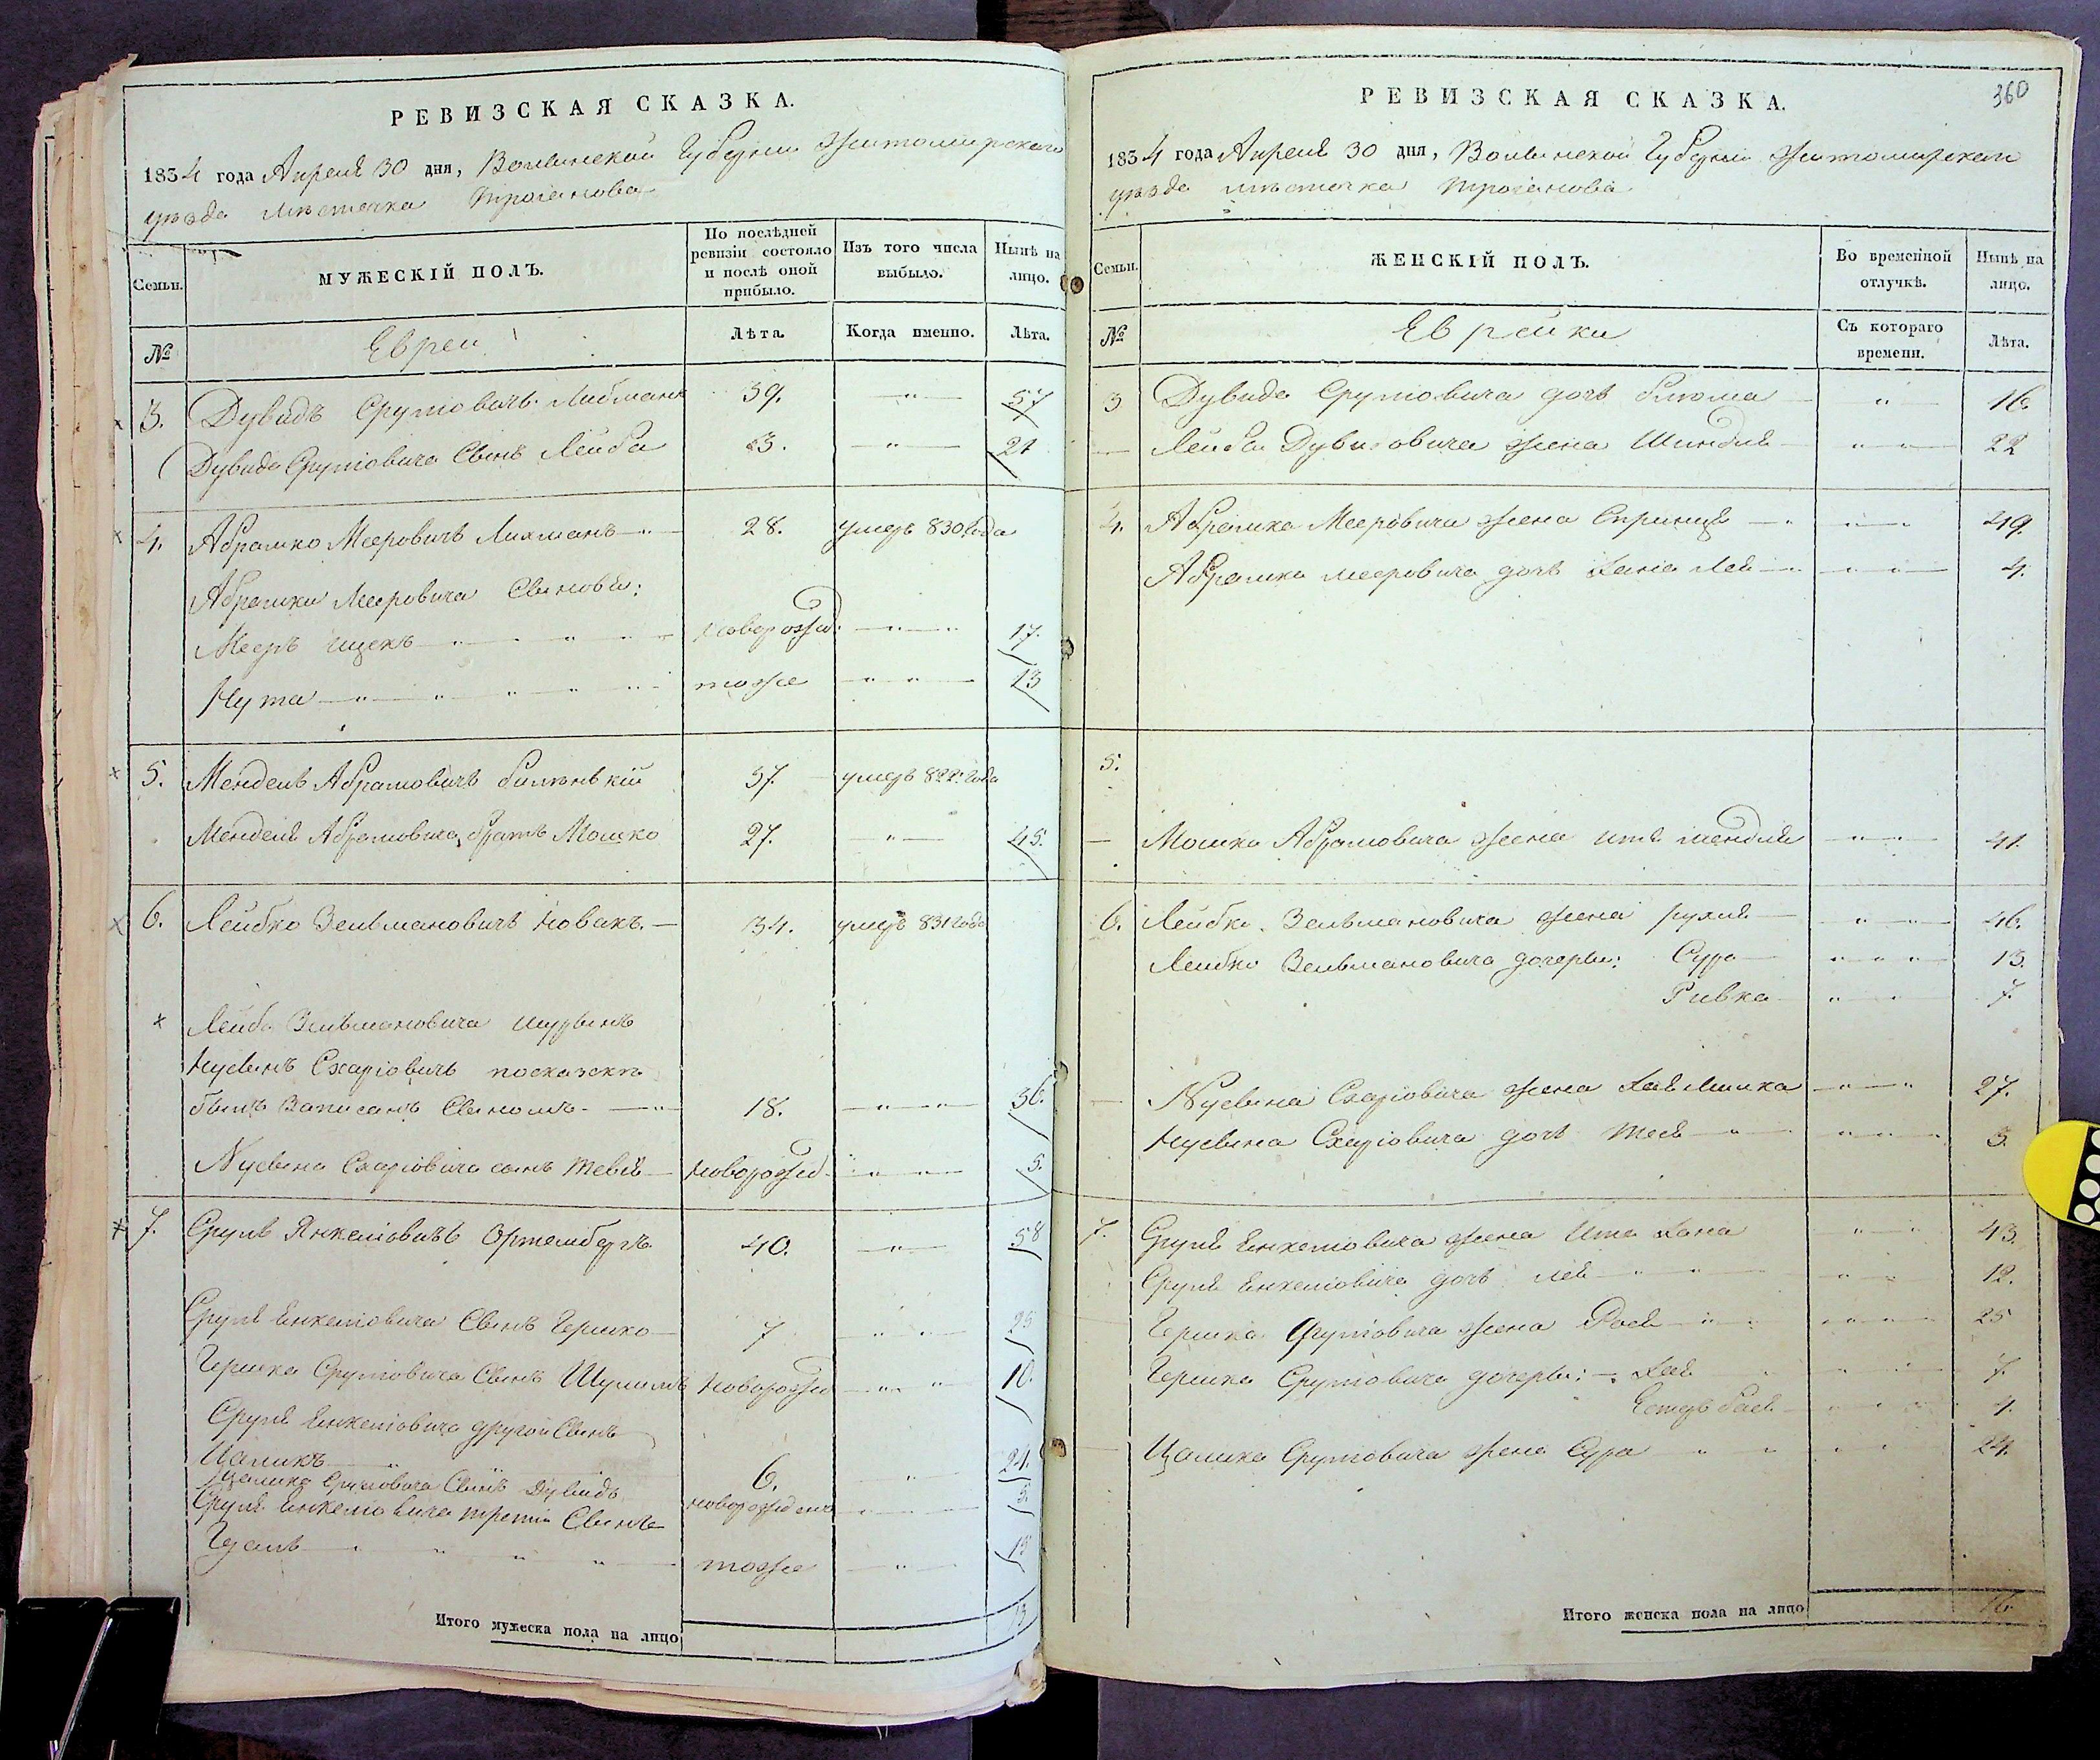 РЕВИЗСКАЯ СКАЗКА.
1834 года Апреля 30 дня, Волынской Губернии Житомирскаго
уезда местечка Троянова
Семьи. МУЖЕСКІЙ ПОЛЪ. По послѣдней ревизіи состояло и послѣ оной прибыло. Изъ того числа выбыло. Нынѣ на лицо.
№ Евреи Лѣта. Когда именно. Лѣта.
3. Дувидъ Срулiовичъ Либманъ 39. — " — 57
Дувида Срулiовича Сынъ Лейба 3. — " — 21
4. Абрамко Мееровичъ Лихманъ 28. умеръ 830 года
Абрамки Мееровича Сыновья:
Мееръ Ицекъ новорожд. — " — 17.
Нута тоже — " — 13
5. Мендель Абрамовичъ 37. умеръ 822 года
Менделя Абрамовича братъ Мошко 27. — " — 45.
6. Лейбко Зельмановичъ Новакъ. 34. умеръ 831 года
Лейба Зельмановича шурынъ
Нусынъ Схаріовичъ по сказкѣ
былъ Записанъ Сыномъ 18. — " — 36.
Нусына Схаріовича сынъ Тевій новорожд. — " — 5.
7. Сруль Янкеліовичъ 40. — " — 58
Сруля Янкеліовича Сынъ Гершко 7 " 25
Гершка Сруліовича Сынъ Шулимъ новорожд — " — 10.
Сруля Янкеліовича другой Сынъ
Цаликъ 6. — " — 24.
Цалика Сруліовича Сынъ Дувидъ новорожденъ 5.
Сруля Янкеліовича третій Сынъ
тоже — " — 15
Итого мужеска пола на лицо 13
360
РЕВИЗСКАЯ СКАЗКА.
1834 года Апреля 30 дня, Волынской Губерніи Житомирскаго
уезда местечка Троянова
Семьи. ЖЕНСКІЙ ПОЛЪ. Во временной отлучкѣ. Нынѣ на лицо.
№ Еврейки Съ котораго времени. Лѣта.
3 Дувида Сруліовича дочь Блюма " 16.
Лейбы Дувидовича жена Шиндля 22
4. Абрамка Мееровича жена Спринця 49.
Абрамка Мееровича дочь Хана Лея 4.
5.
Мошка Абрамовича жена 41.
6. Лейбки Зельмановича жена Рухля 46.
Лейбко Зельмановича дочеры: Сура 13.
Ривка 7.
Нусына Схаріовича жена 27.
Нусына Схаріовича дочь 3.
7. Сруля Янкеліовича жена Ита Хана 43.
Сруля Янкеліовича дочь Лея 12.
Гершка Сруліовича жена 25
Гершка Сруліовича дочеры: Хая 7.
4.
Цалика Сруліовича жена Сура 24.
Итого женска пола на лицо 16.